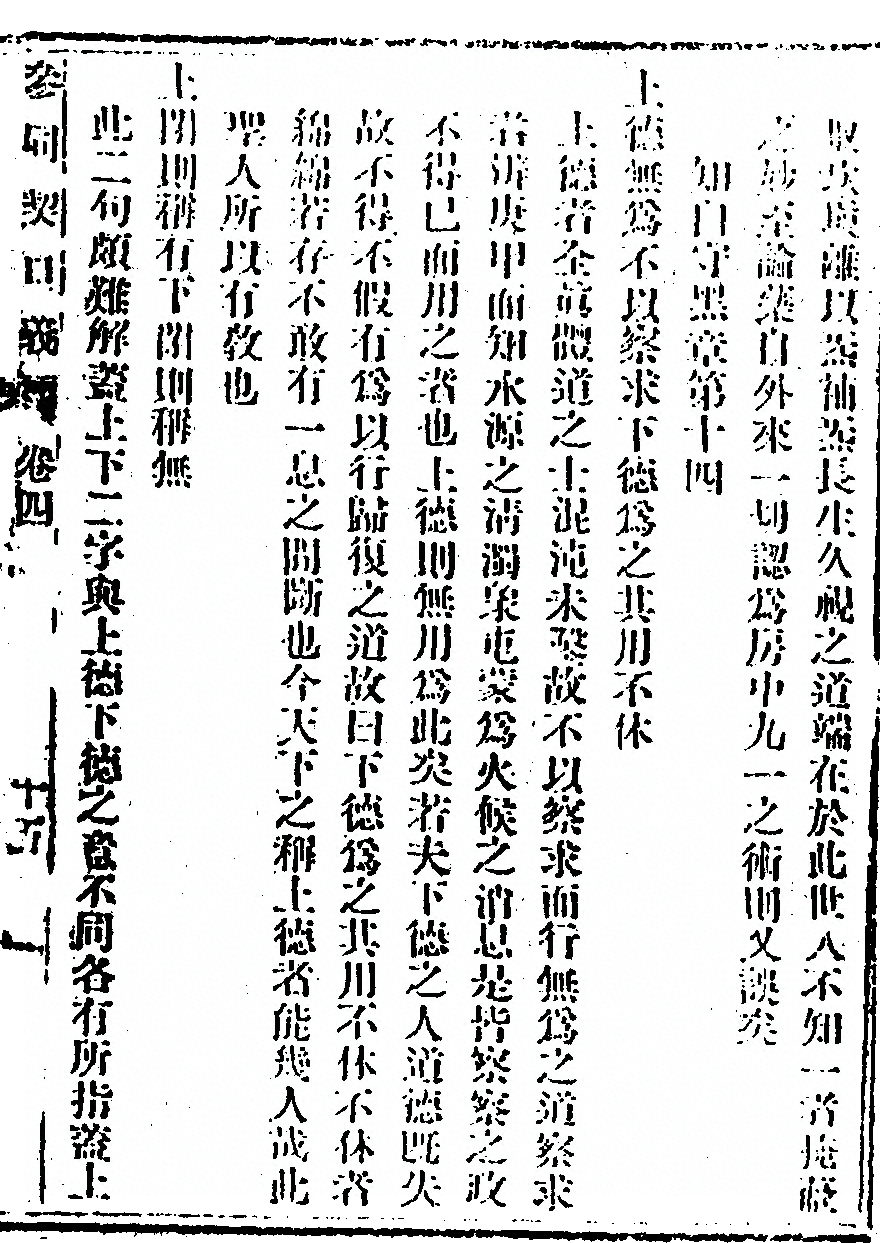 取坎填離以炁補炁長生久視之道端在於此世人不知一者掩蔽
之妙至論藥自外來一切認爲房中九一之術則又誤矣
知白守黑章第十四
上德無爲不以察求下德爲之其用不休
上德者全眞體道之士混沌未鑿故不以察求而行無爲之道察求
者辨庚甲而知水源之淸濁象屯蒙爲火候之消息是皆察察之政
不得已而用之者也上德則無用爲此矣若夫下德之人道德旣失
故不得不假有爲以行歸復之道故曰下德爲之其用不休不休者
綿綿若存不敢有一息之間斷也今天下之稱上德者能幾人哉此
聖人所以有敎也
上閉則稱有下閉則稱無
此二句頗難解蓋上下二字與上德下德之意不同各有所指蓋上
參同契口義 卷四 十五